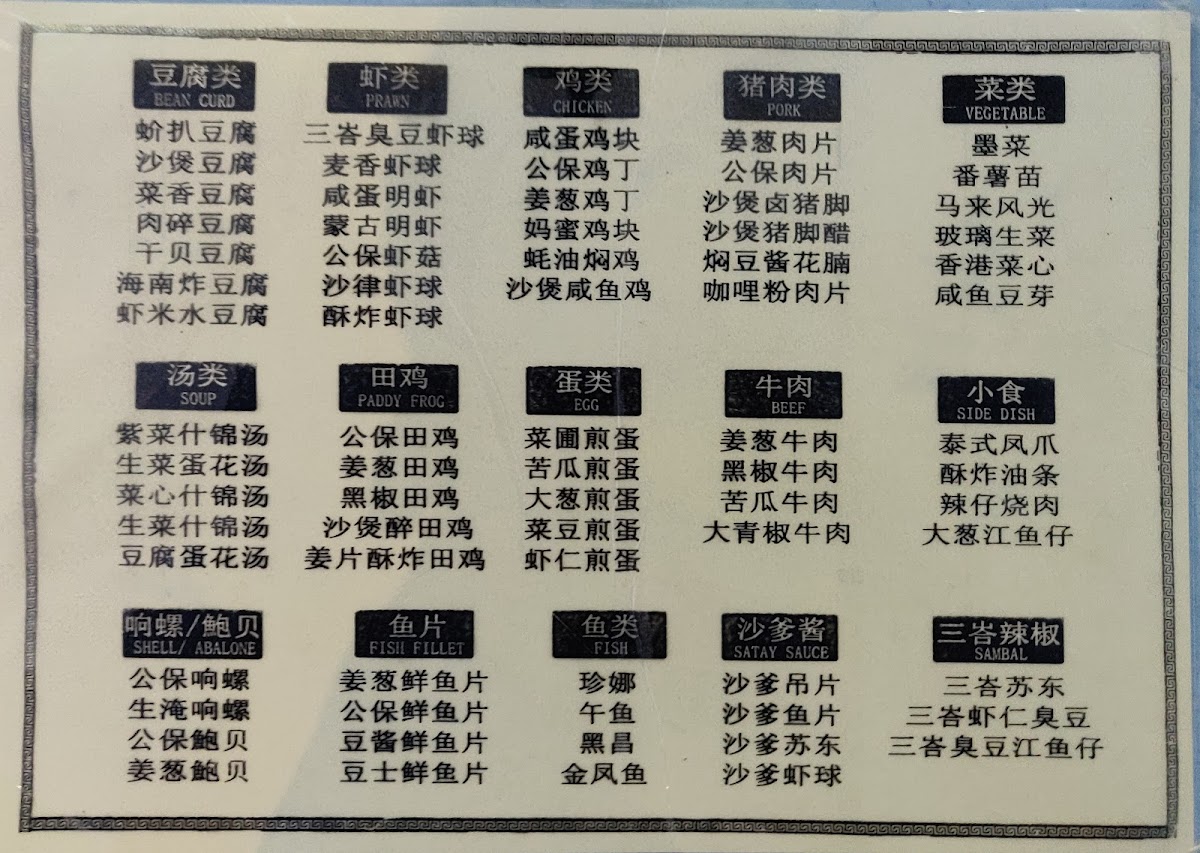 豆腐类
BEAN CURD
蚧扒豆腐
沙煲豆腐
菜香豆腐
肉碎豆腐
干贝豆腐
海南炸豆腐
虾米水豆腐
虾类
PRAWN
三峇臭豆虾球
麦香虾球
咸蛋明虾
蒙古明虾
公保虾菇
沙律虾球
酥炸虾球
鸡类
CHICKEN
咸蛋鸡块
公保鸡丁
姜葱鸡丁
妈蜜鸡块
蚝油焖鸡
沙煲咸鱼鸡
猪肉类
PORK
姜葱肉片
公保肉片
沙煲卤猪脚
沙煲猪脚醋
焖豆酱花腩
咖哩粉肉片
菜类
VEGETABLE
墨菜
番薯苗
马来风光
玻璃生菜
香港菜心
咸鱼豆芽
汤类
SOUP
紫菜什锦汤
生菜蛋花汤
菜心什锦汤
生菜什锦汤
豆腐蛋花汤
田鸡
PADDY FROG
公保田鸡
姜葱田鸡
黑椒田鸡
沙煲醉田鸡
姜片酥炸田鸡
蛋类
EGG
菜圃煎蛋
苦瓜煎蛋
大葱煎蛋
菜豆煎蛋
虾仁煎蛋
牛肉
BEEF
姜葱牛肉
黑椒牛肉
苦瓜牛肉
大青椒牛肉
小食
SIDE DISH
泰式凤爪
酥炸油条
辣仔烧肉
大葱江鱼仔
响螺/鲍贝
SHELL/ ABALONE
公保响螺
生淹响螺
公保鲍贝
姜葱鲍贝
鱼片
FISH FILLET
姜葱鲜鱼片
公保鲜鱼片
豆酱鲜鱼片
豆士鲜鱼片
鱼类
FISH
珍娜
午鱼
黑昌
金凤鱼
沙爹酱
SATAY SAUCE
沙爹吊片
沙爹鱼片
沙爹苏东
沙爹虾球
三峇辣椒
SAMBAL
三峇苏东
三峇虾仁臭豆
三峇臭豆江鱼仔